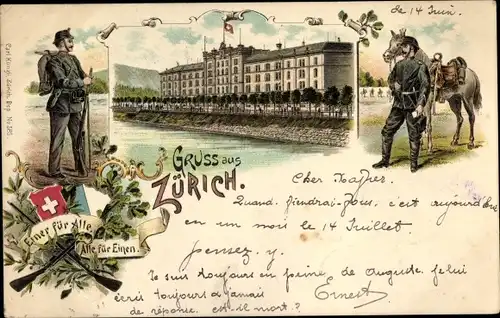 Carl Künzli, Zürich, Dep. No 1215.
le 14 Juin.
GRUSS aus
ZÜRICH.
Einer für Alle,
Alle für Einen.
Cher
Quand viendrai-vous, c'est aujourd'hui
en un mois le 14 Juillet
pensez. y.
Je suis toujours en peine de Auguste je lui
écris toujours & jamais
de réponse. est-il mort?
Ernest